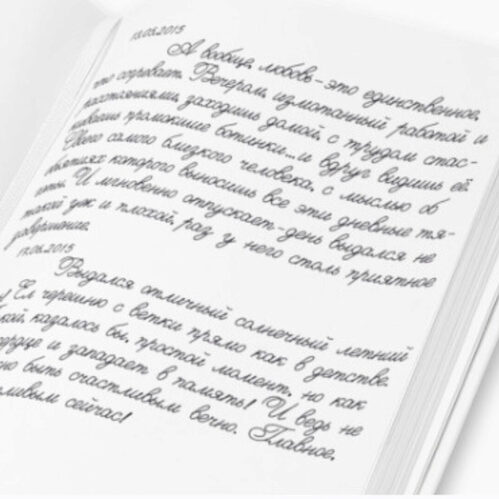 15.05.2015
А вообще, любовь - это единственное,
что согревает. Вечером, измотанный работой и
расстояниями, заходишь домой, с трудом стас-
киваешь промокшие ботинки...и вдруг видишь её.
Своего самого близкого человека, с мыслью об
объятиях которого выносишь все эти дневные тя-
готы. И мгновенно отпускает-день выдался не
такой уж и плохой, раз у него столь приятное
завершение.
17.06.2015
Выдался отличный солнечный летний
! Ел черешню с ветки прямо как в детстве.
кой, казалось бы, простой момент, но как
сердце и западает в память! И ведь не
но быть счастливым вечно. Главное,
ливым сейчас!